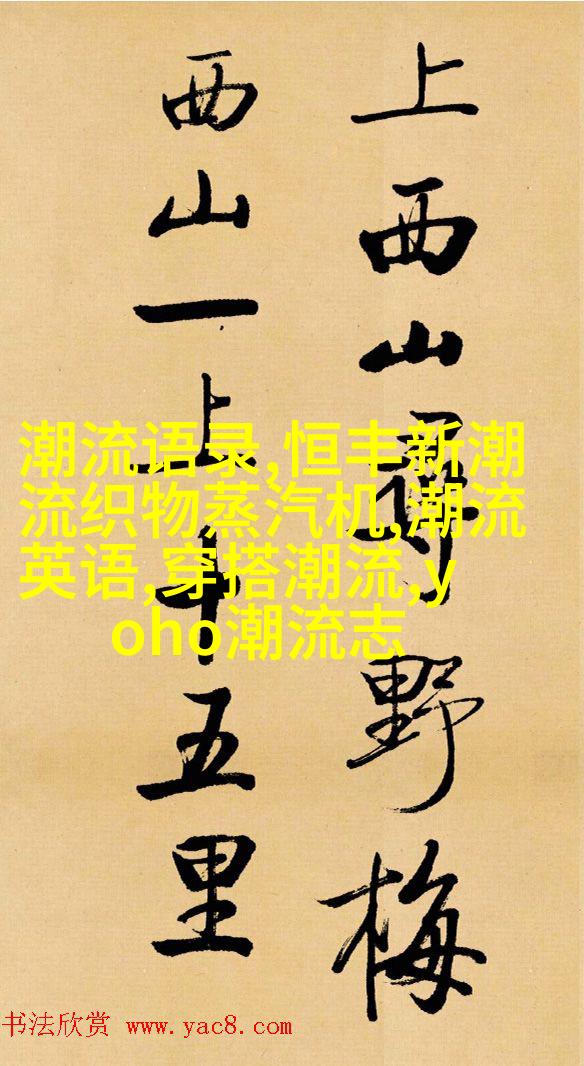 上西山尋野梅
西山一上十五里
潮流语录,恒丰新潮
流织物蒸汽机,潮流
英语,穿搭潮流,y
oho潮流志
书法欣赏 www.yac8.com